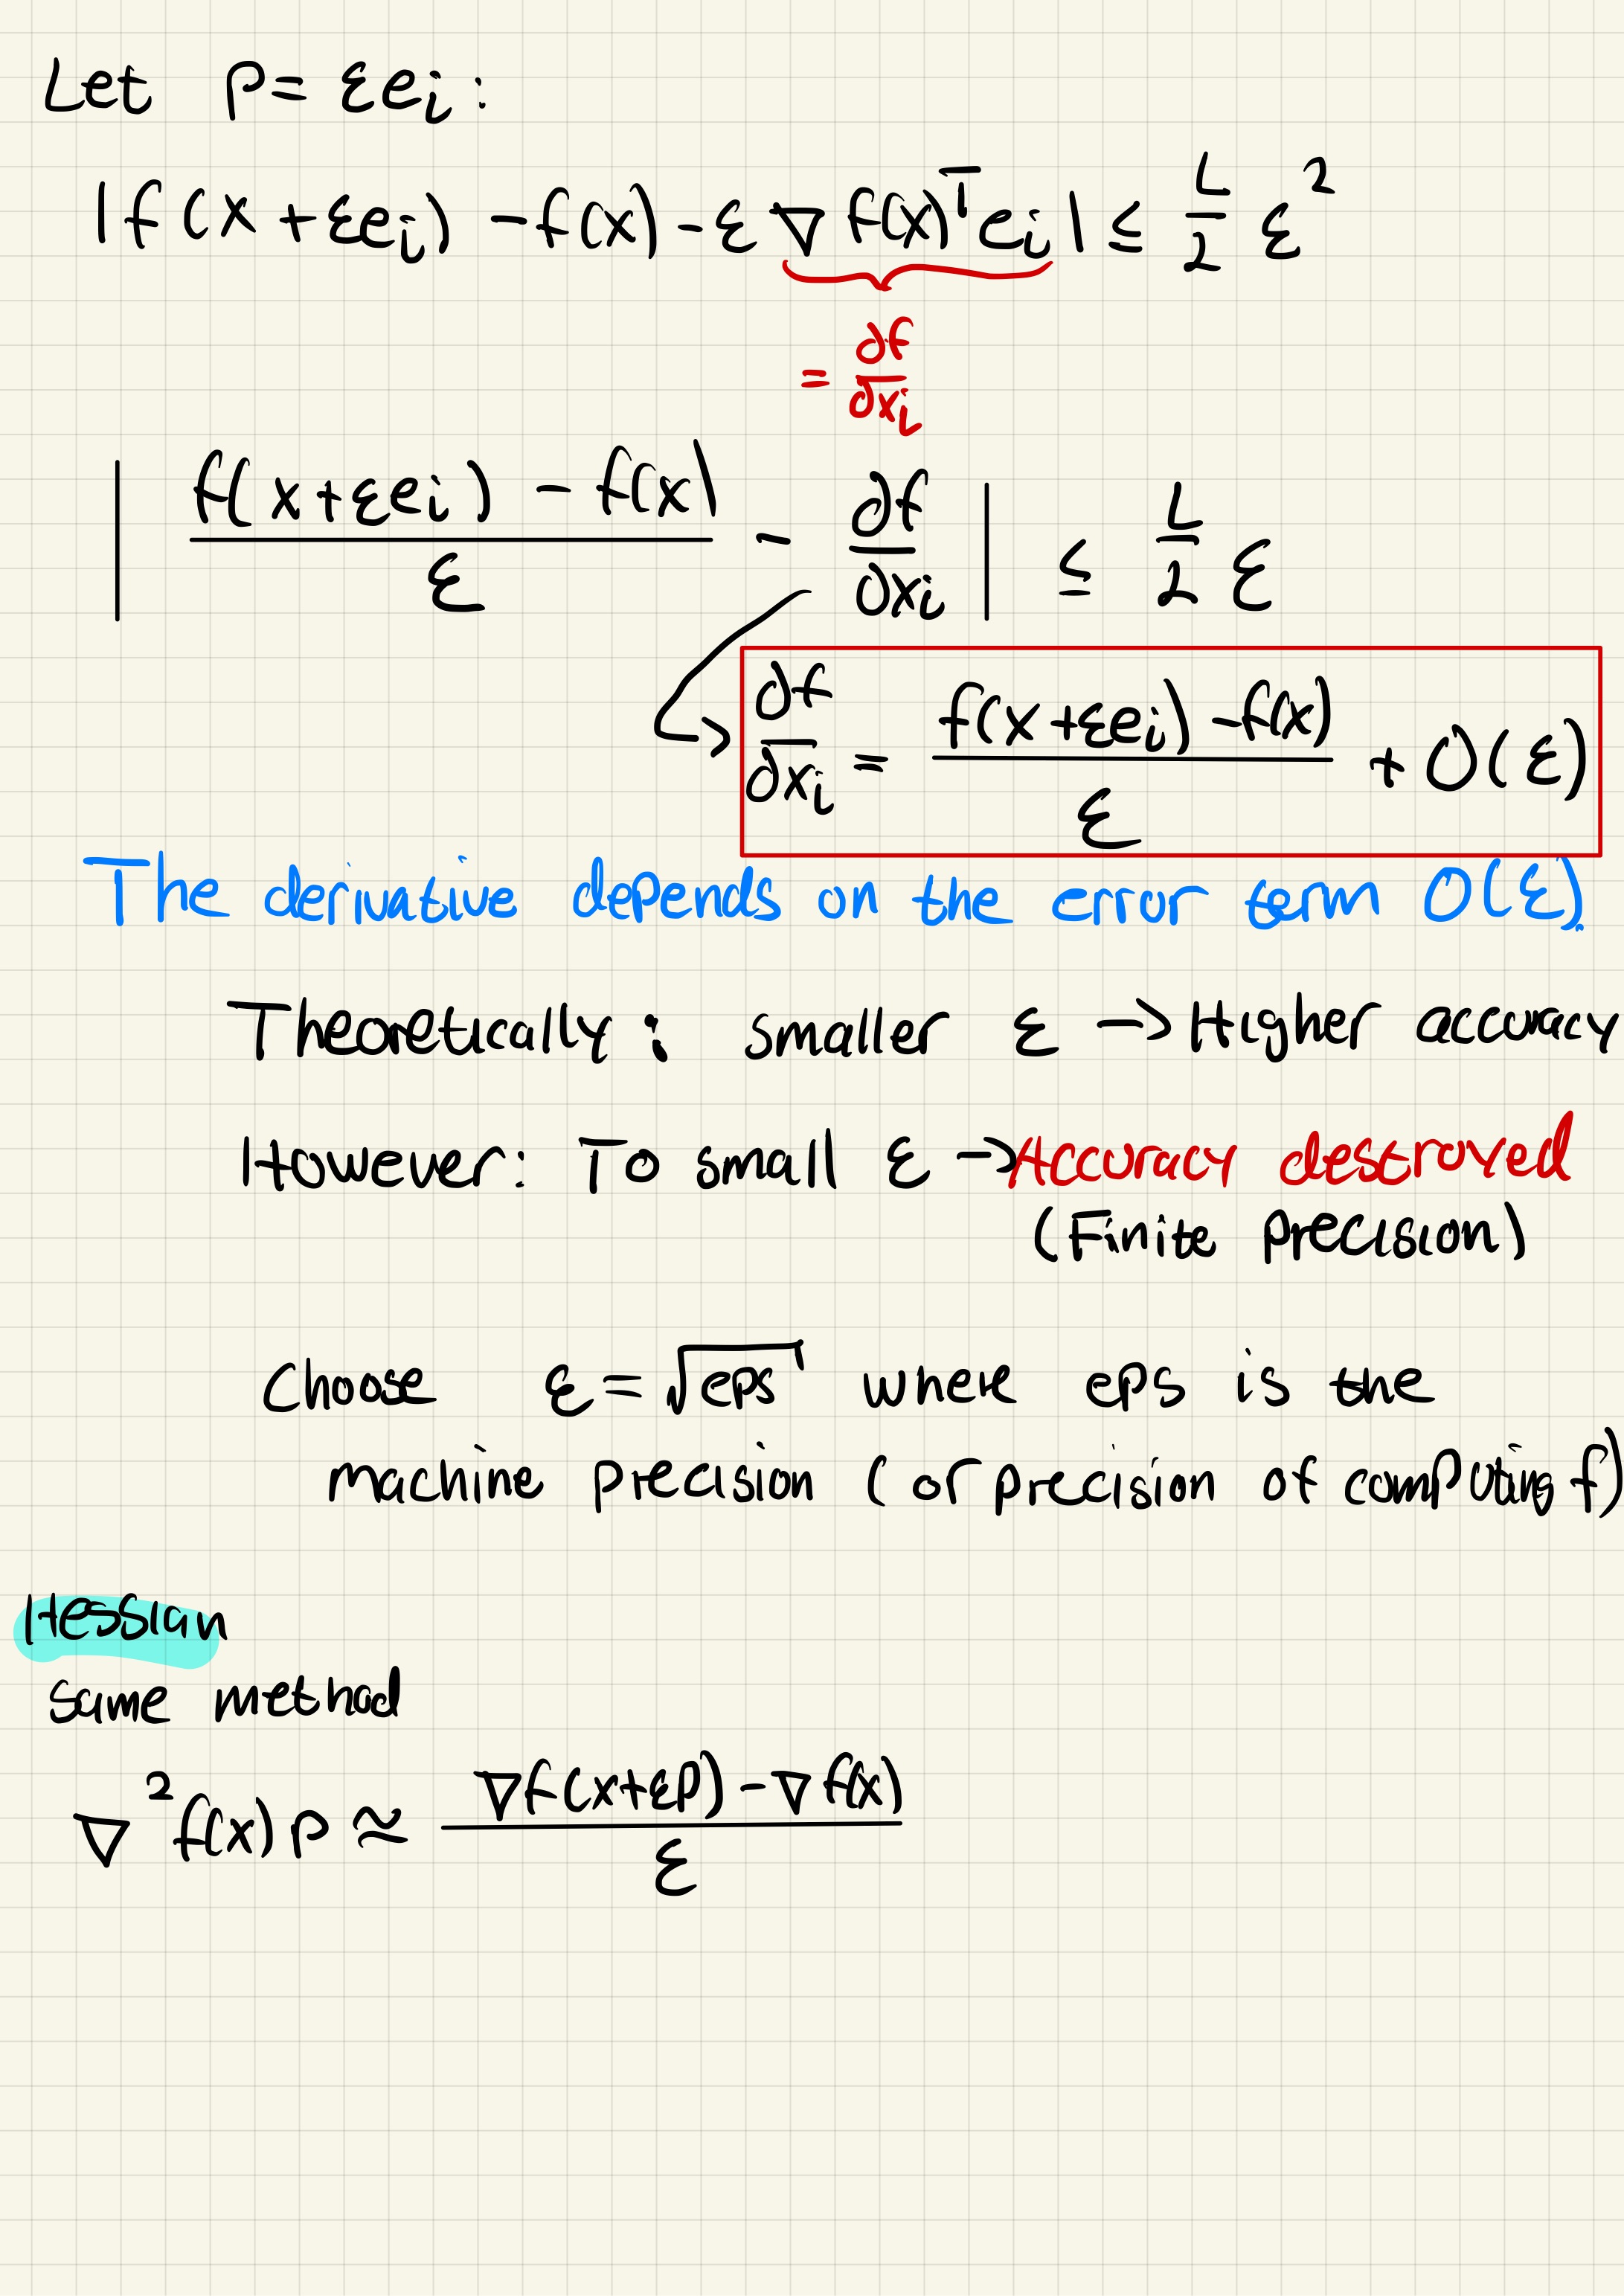 Let p = εeᵢ :
|f(x + εeᵢ) - f(x) - ε∇f(x)ᵀeᵢ| ≤ L/2 ε²
= ∂f/∂xᵢ
| (f(x + εeᵢ) - f(x))/ε - ∂f/∂xᵢ | ≤ L/2 ε
∂f/∂xᵢ = (f(x + εeᵢ) - f(x))/ε + O(ε)
The derivative depends on the error term O(ε).
Theoretically: smaller ε → Higher accuracy
However: To small ε → Accuracy destroyed
(Finite precision)
Choose ε = √eps where eps is the
machine precision (or precision of computing f)
Hessian
same method
∇²f(x)p ≈ (∇f(x+εp) - ∇f(x))/ε